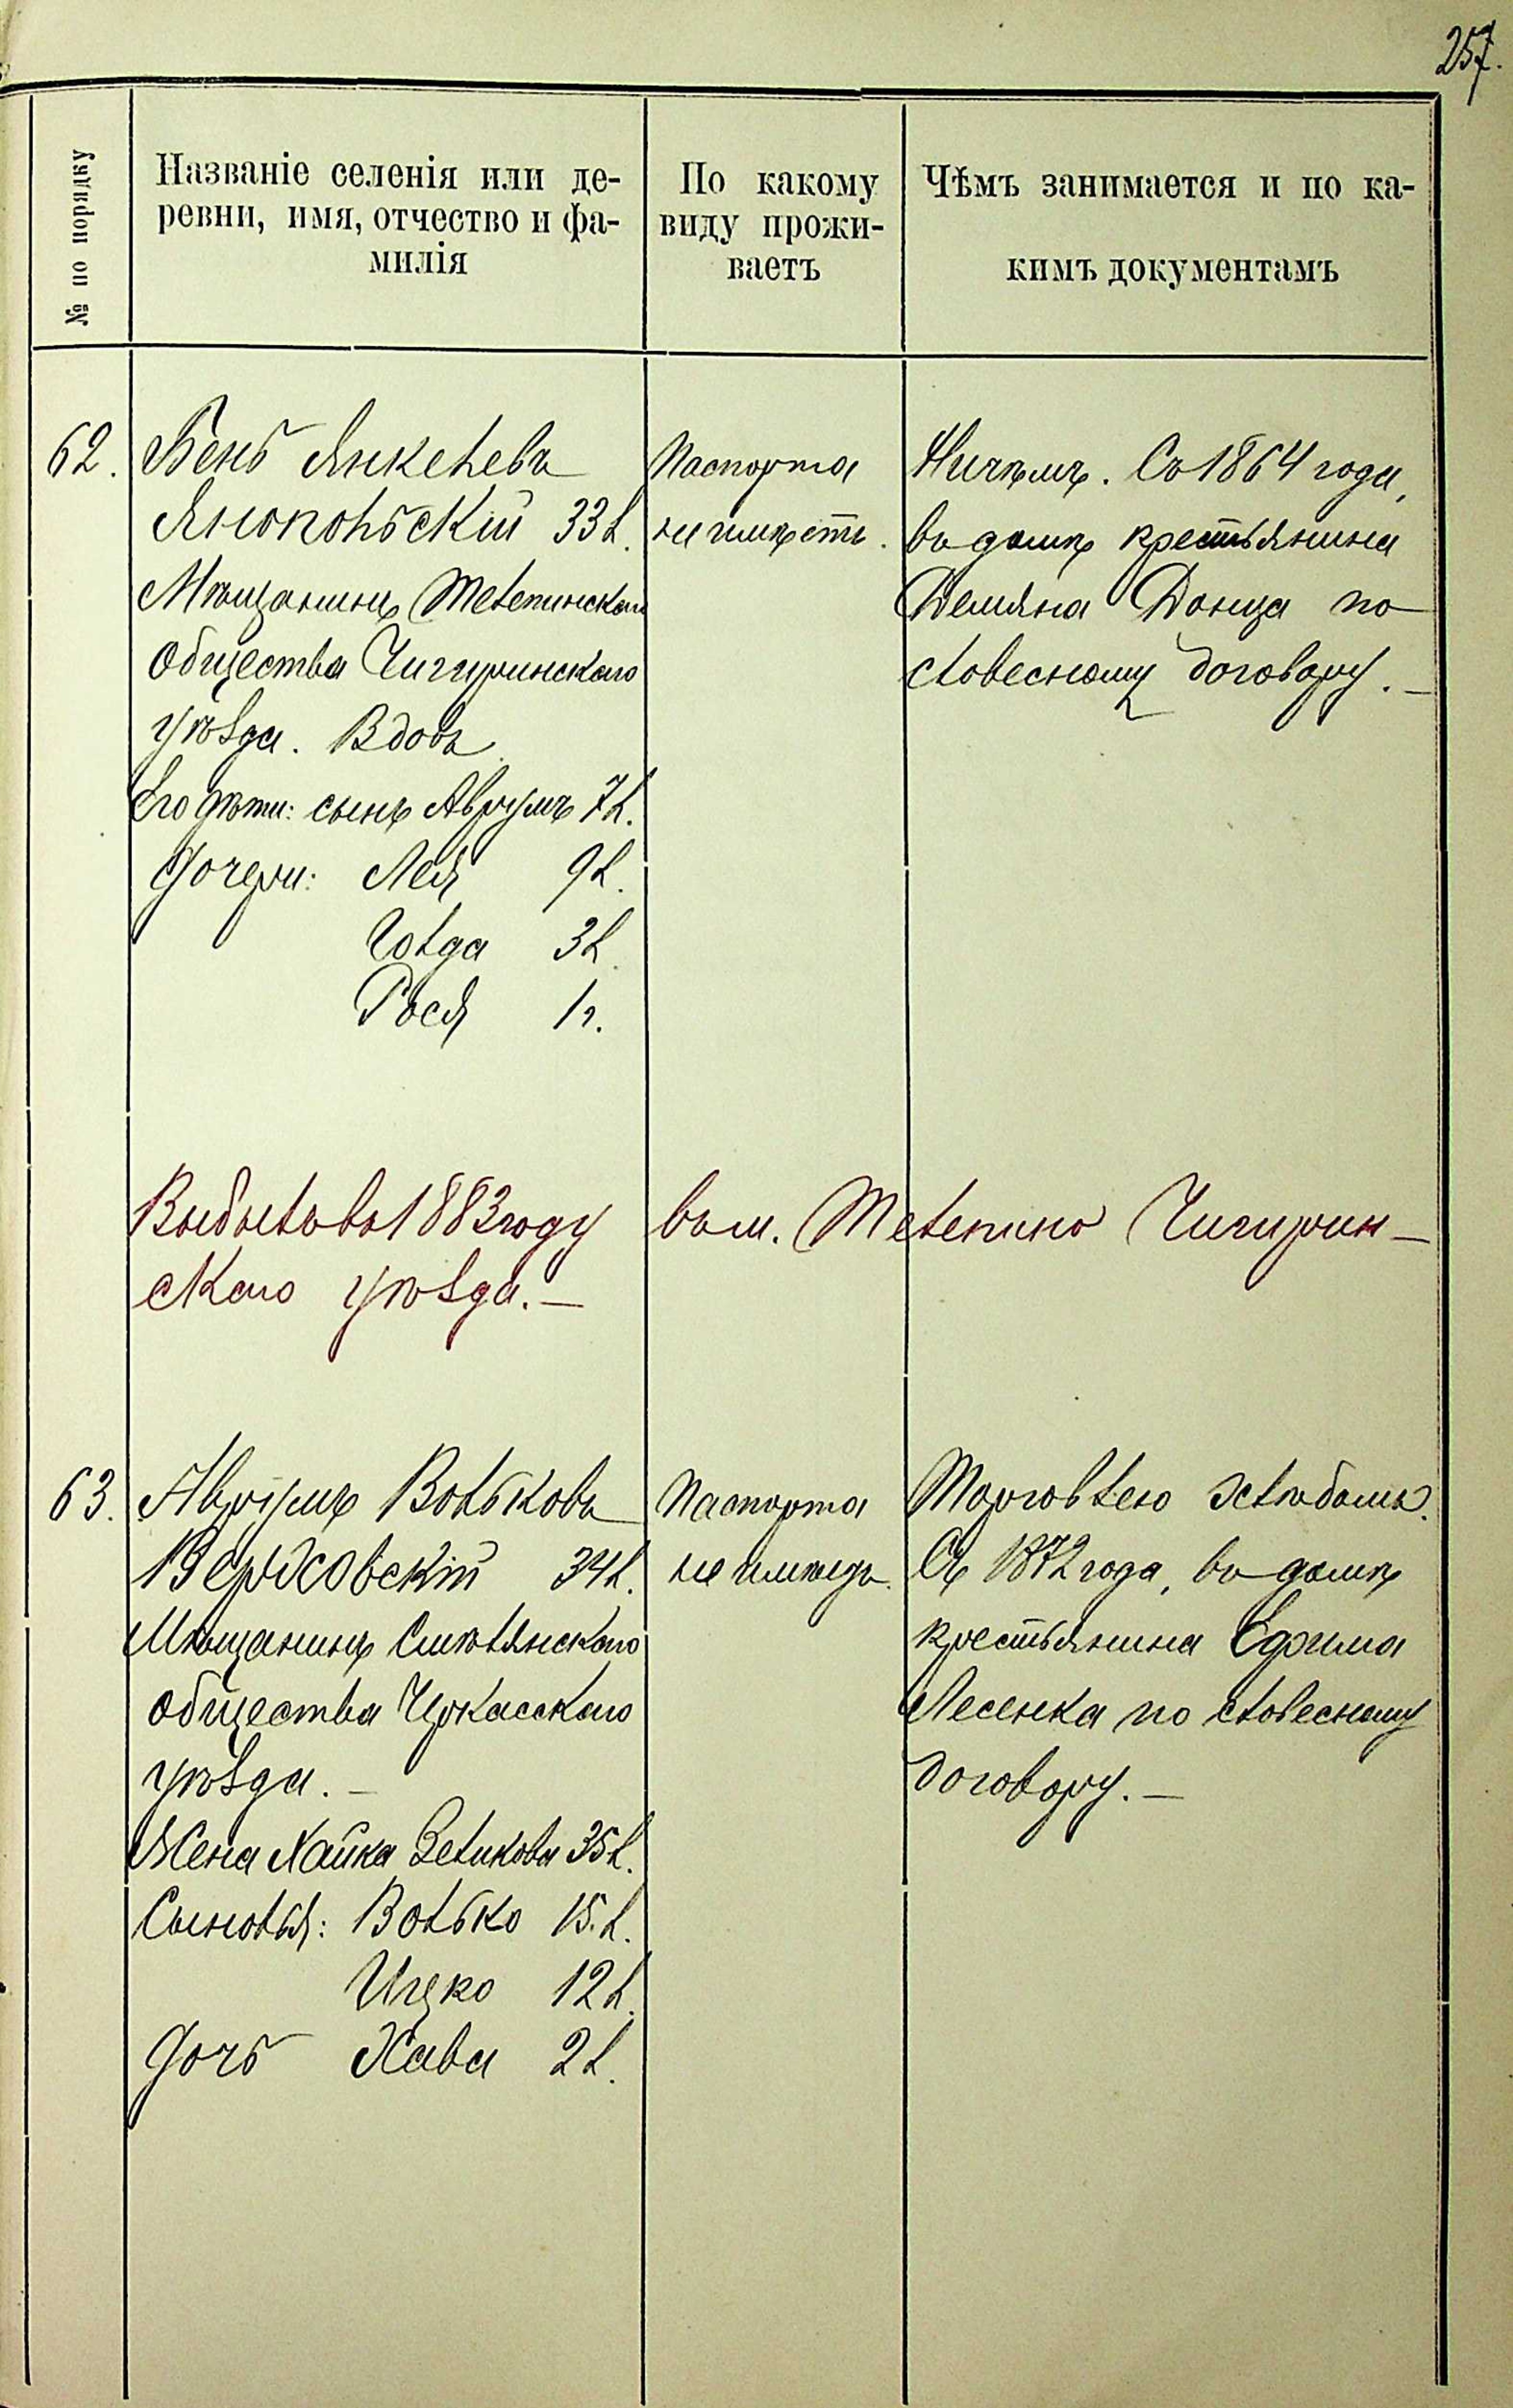 257.
№ по порядку
Названіе селенія или де-
ревни, имя, отчество и фа-
милія
По какому
виду прожи-
ваетъ
Чѣмъ занимается и по ка-
кимъ документамъ
62.
Бень Янкелевъ
Янопольскій 33 л.
Мѣщанинъ Телепинскаго
Общества Чигиринскаго
уѣзда. Вдовъ
Его дѣти: сынъ Аврумъ 7 л.
Дочери: Лея 9 л.
Голда 3 л.
Рося 1 г.
Паспорта
не имѣетъ.
Ничѣмъ. Съ 1864 года,
въ домѣ крестьянина
Демяна Донца по
словесному договору. —
Выбылъ въ 1883 году въ м. Телепино Чигирин-
скаго уѣзда. —
63.
Аврумъ Вольковъ
Вержховскій 34 л.
Мѣщанинъ Смѣлянскаго
общества Черкасскаго
уѣзда. —
Жена Хайка Зеликова 35 л.
Сыновья: Волько 15. л.
Ицко 12 л.
Дочь Хава 2 л.
Паспорта
не имѣетъ.
Торговлею хлѣбомъ.
Съ 1872 года, въ домѣ
крестьянина Ефима
Лесенка по словесному
договору. —